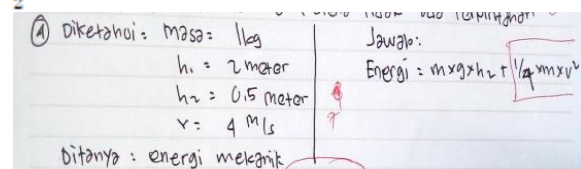 2
④ Diketahui: masa: 1kg
h₁ = 2 meter
h₂ = 0,5 meter
v = 4 m/s
Ditanya: energi mekanik
Jawab:
Energi = mxgxh₂ + 1/4xmxv²